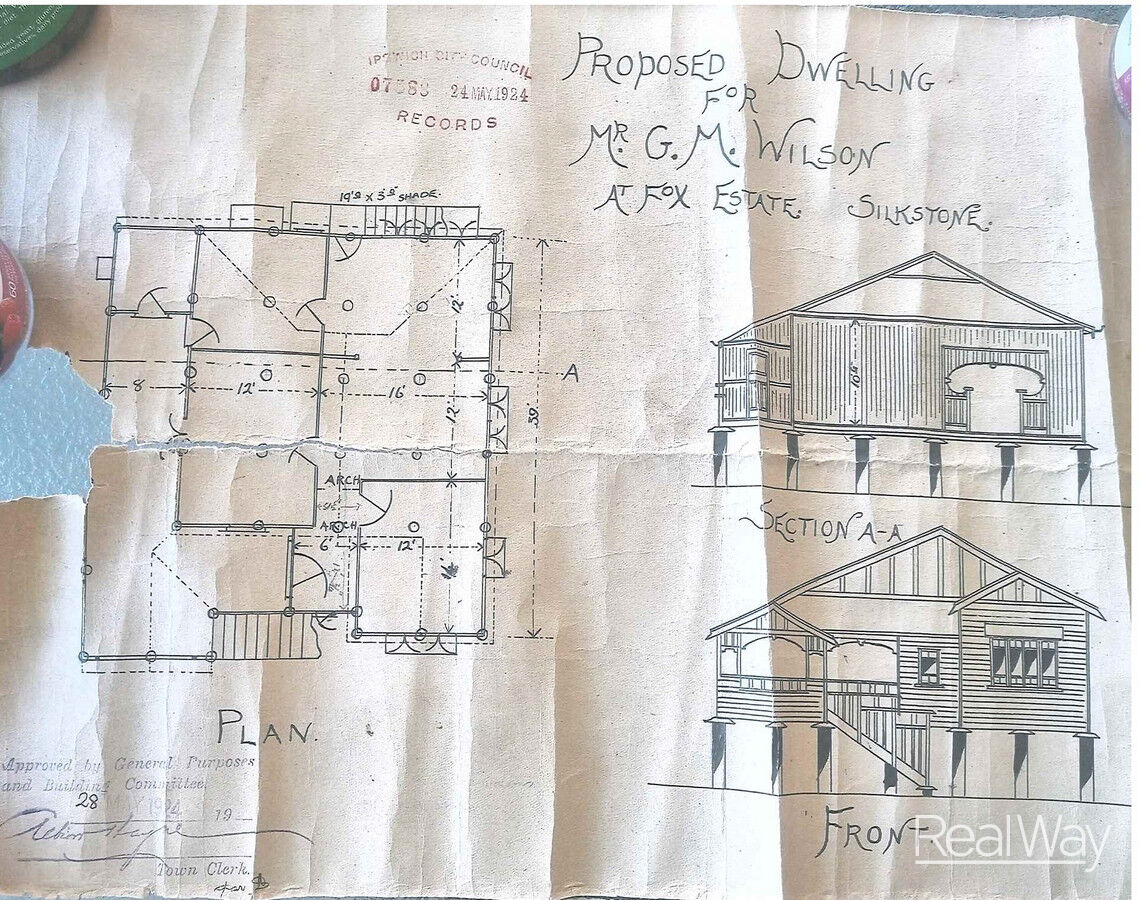 IPSWICH CITY COUNCIL
24 MAY.1924
RECORDS
PROPOSED DWELLING
FOR
MR. G. M. WILSON
AT FOX ESTATE. SILKSTONE.
19'0 x 3'0 SHADE.
12'
A
8
12'
16'
12'
39'
10'0"
ARCH
ARCH
6'
12'
14'
SECTION A-A
PLAN.
Approved by General Purposes
and Building Committee.
28 MAY 1924 19
Town Clerk.
FRONT.
RealWay